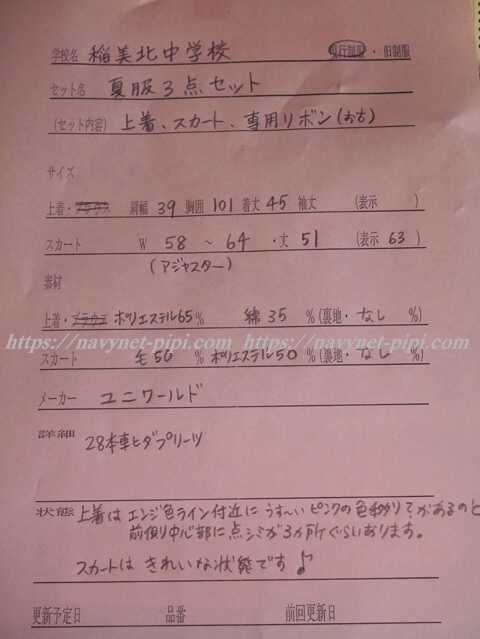 学校名 稲美北中学校 現行制服・旧制服
セット名 夏服3点セット
(セット内容) 上着、スカート、専用リボン(おち)
サイズ
上着・ブラウス 肩幅 39 胸囲 101 着丈 45 袖丈 (表示 )
スカート W 58 ~ 64 ・丈 51 (表示 63)
(アジャスター)
素材
上着・ブラウス ポリエステル65% 綿 35 %(裏地・なし %)
https://navynet-pipi.com https://navynet-pipi.com
スカート 毛 50 % ポリエステル50 %(裏地・なし %)
メーカー ユニワールド
詳細
28本車ヒダプリーツ
状態 上着はエンジ色ライン付近にうす〜いピンクの色移りがあるのと
前側り中心部に点シミが3ヵ所ぐらいあります。
スカートはきれいな状態です♪
更新予定日 品番 前回更新日